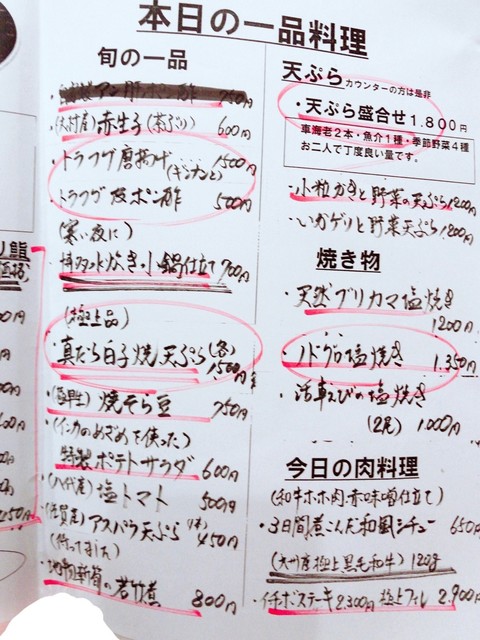 本日の一品料理
旬の一品
アン肝ポン酢 750円
(大村産)赤生子(茶ぶり) 600円
・トラフグ唐揚げ(ギンナンと) 1500円
・トラフグ皮ポン酢 500円
(寒い夜に)
博多水炊き・小鍋仕立て 700円
(極上品)
・真だら白子焼、天ぷら(各) 1500円
焼そら豆 750円
(インカのめざめを使った)
特製ポテトサラダ 600円
(八代産)塩トマト 500円
(佐賀産)アスパラ天ぷら(1本) 450円
(待ってました)
新筍の若竹煮 800円
天ぷら カウンターの方は是非
・天ぷら盛合せ 1.800円
車海老2本・魚介1種・季節野菜4種
お二人で丁度良い量です。
・小粒かきと野菜の天ぷら 1200円
・いかゲソと野菜天ぷら 1200円
焼き物
・天然ブリカマ塩焼き
1200円
・ノドグロ塩焼き 1.350円
・活車えびの塩焼き
(2尾) 1000円
今日の肉料理
(和牛ホホ肉、赤味噌仕立て)
・3日間煮こんだ和風シチュー 650円
(九州産極上黒毛和牛) 120g
・イチボステーキ 2.300円 極上フィレ 2.900円